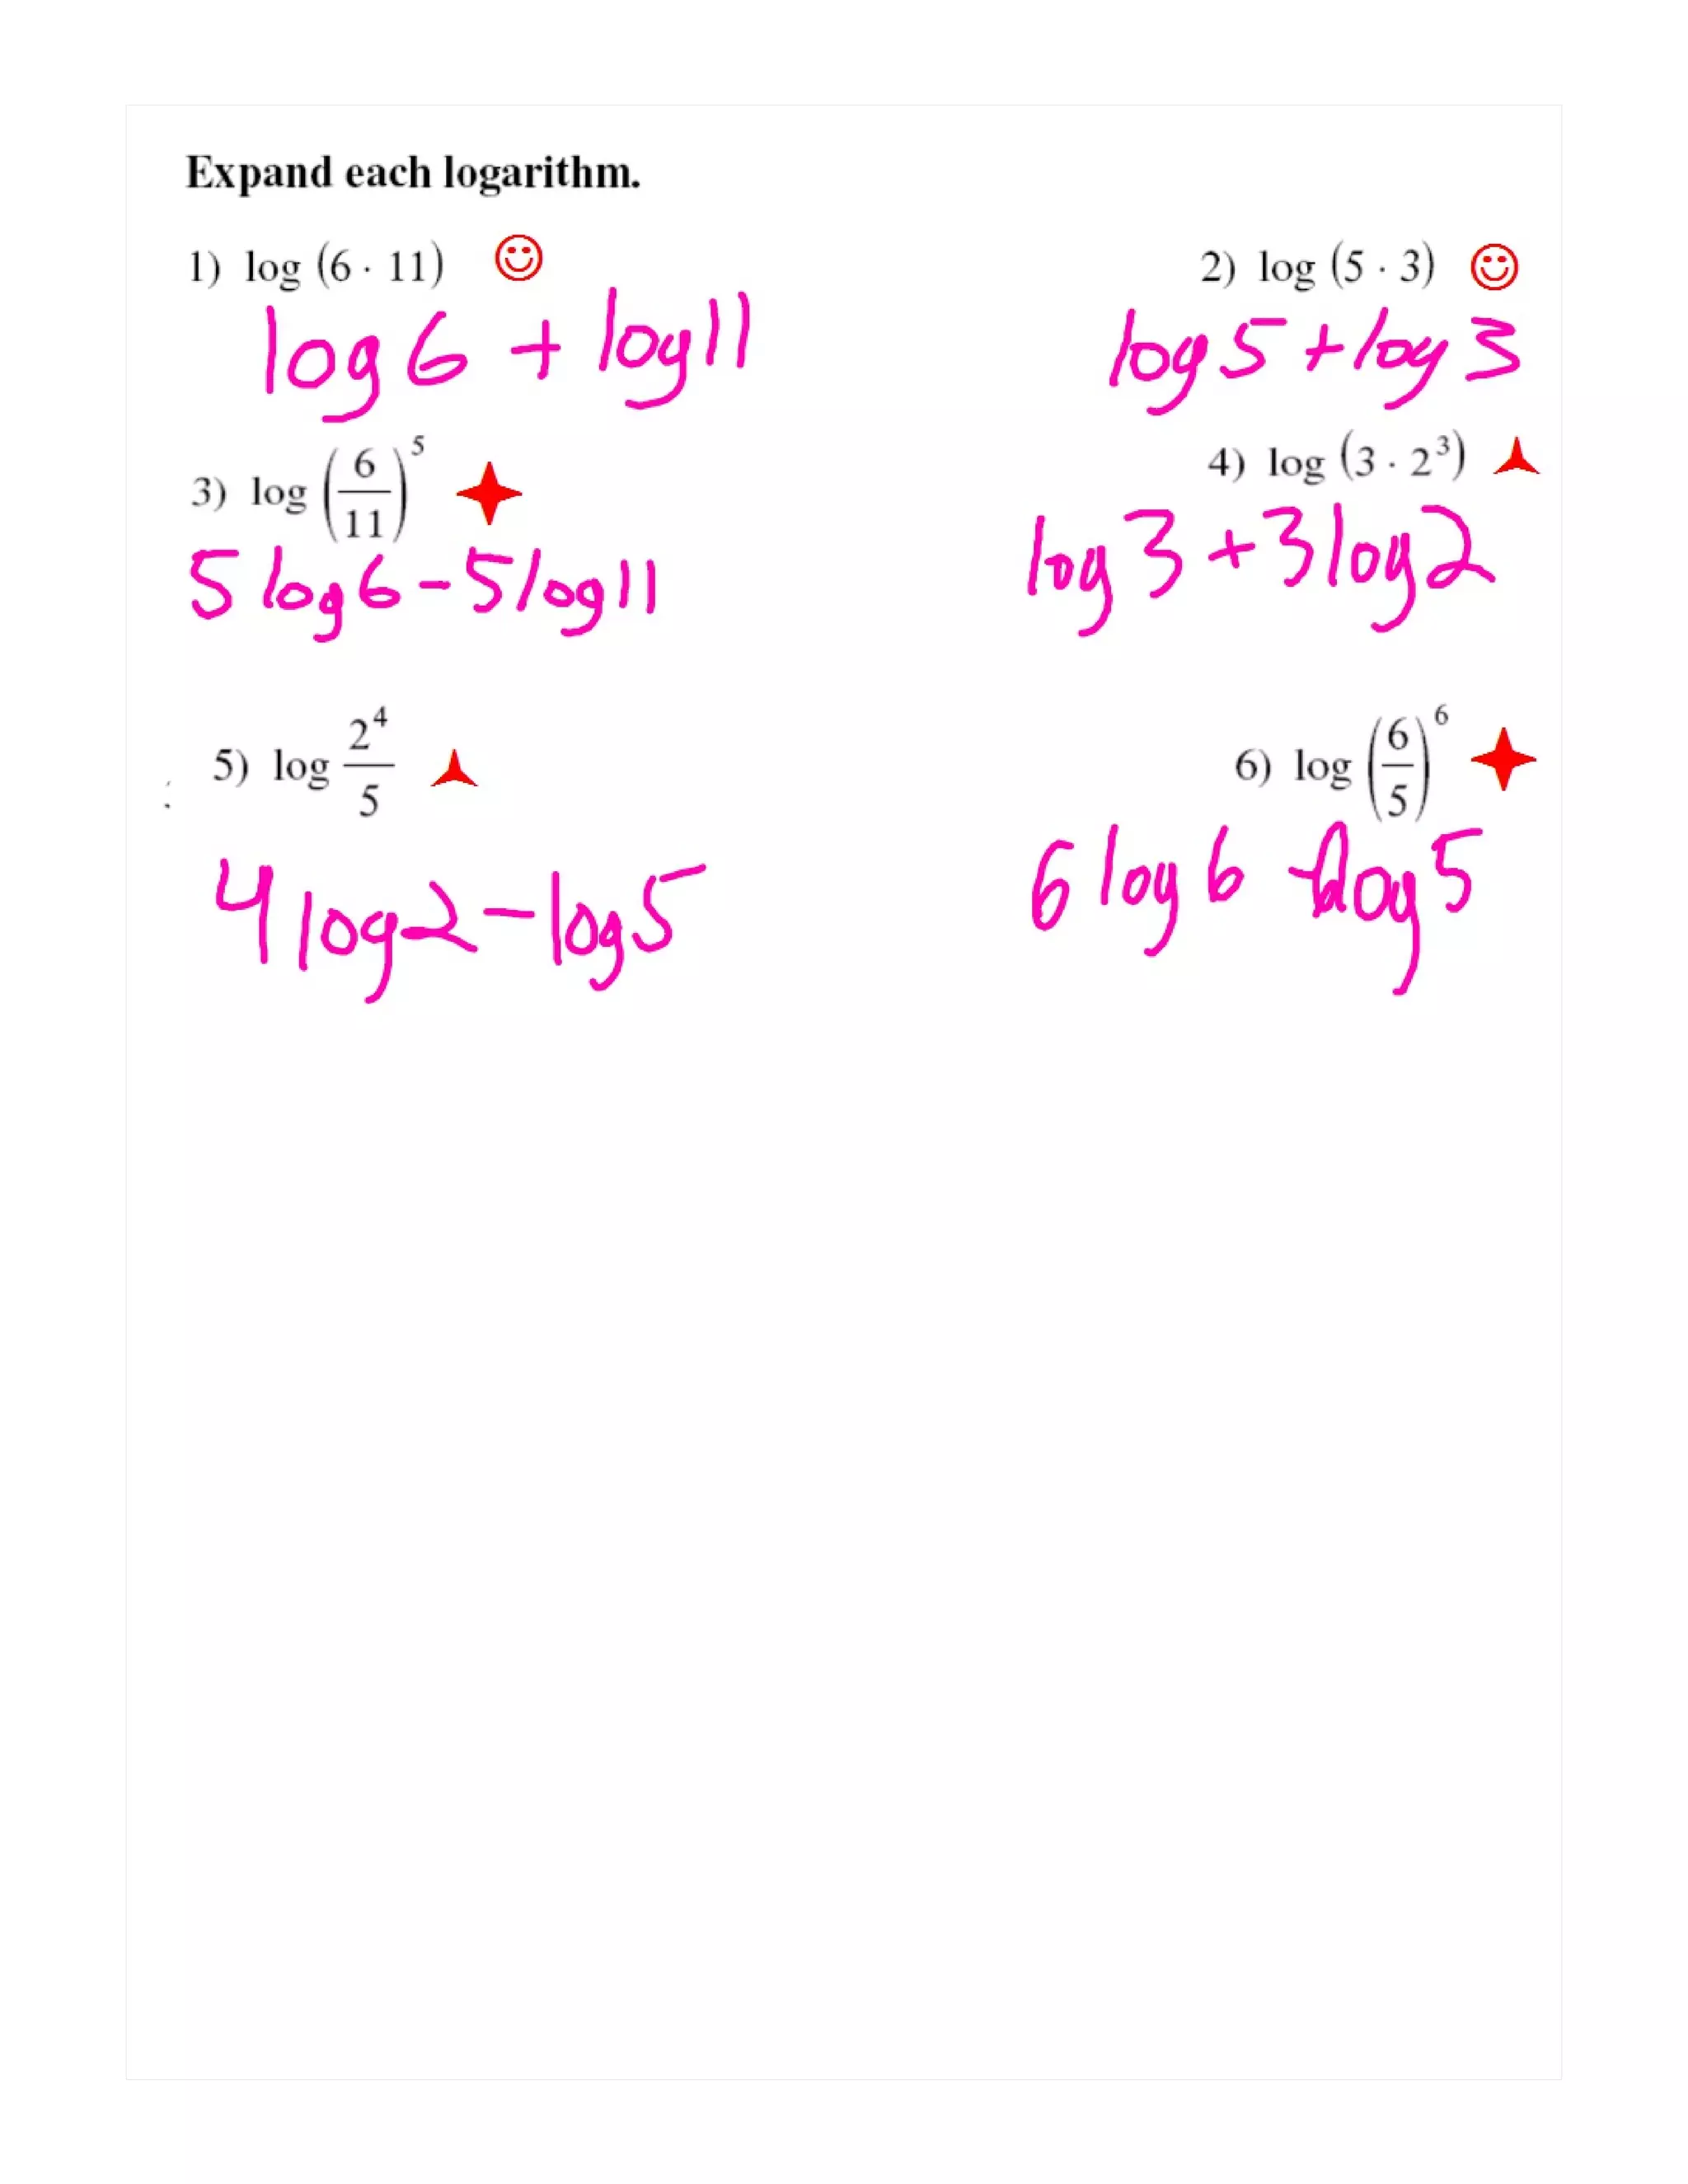 Expand each logarithm.
1) log (6 · 11)
log 6 + log 11
2) log (5 · 3)
log 5 + log 3
3) log (6/11)^5
5 log 6 - 5 log 11
4) log (3 · 2^3)
log 3 + 3 log 2
5) log 2^4/5
4 log 2 - log 5
6) log (6/5)^6
6 log 6 - log 5